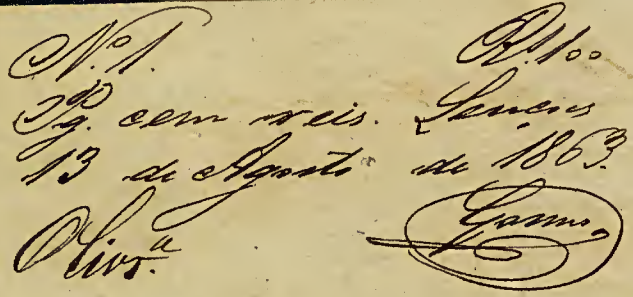 N.º 1. Rs. 100
Pg. cem reis. Lencóes
13 de Agosto de 1863.
Olivr.ª